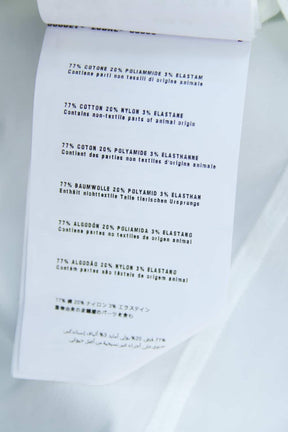 77% COTONE 20% POLIAMMIDE 3% ELASTAM
Contiene parti non tessili di origine animale
77% COTTON 20% NYLON 3% ELASTANE
Contains non-textile parts of animal origin
77% COTON 20% POLYAMIDE 3% ELASTHANNE
Contient des parties non textiles d'origine animale
77% BAUMWOLLE 20% POLYAMID 3% ELASTHAN
Enthält nichttextile Teile tierischen Ursprungs
77% ALGODÓN 20% POLIAMIDA 3% ELASTANO
Contiene partes no textiles de origen animal
77% ALGODÃO 20% NYLON 3% ELASTANO
Contém partes não têxteis de origem animal
77% 綿 20% ナイロン 3% エラステイン